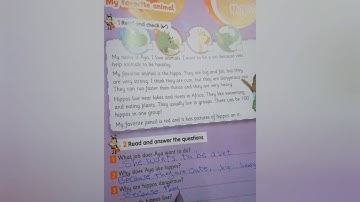 My favorite animal
1 Read and check (✓).
My name is Aya. I love animals. I want to be a vet because vets
help animals to be healthy.
My favorite animal is the hippo. They are big and fat, but they
are very strong. I think they are cute, but they are dangerous.
They can run faster than you and they are very heavy.
Hippos live near lakes and rivers in Africa. They like swimming
and eating plants. They usually live in groups. There can be 100
hippos in one group!
My favorite pencil is red and it has pictures of hippos on it.
2 Read and answer the questions.
1 What job does Aya want to do?
She wants to be a vet
2 Why does Aya like hippos?
Because they are cute,
3 Why are hippos dangerous?
Because they
hippos live?